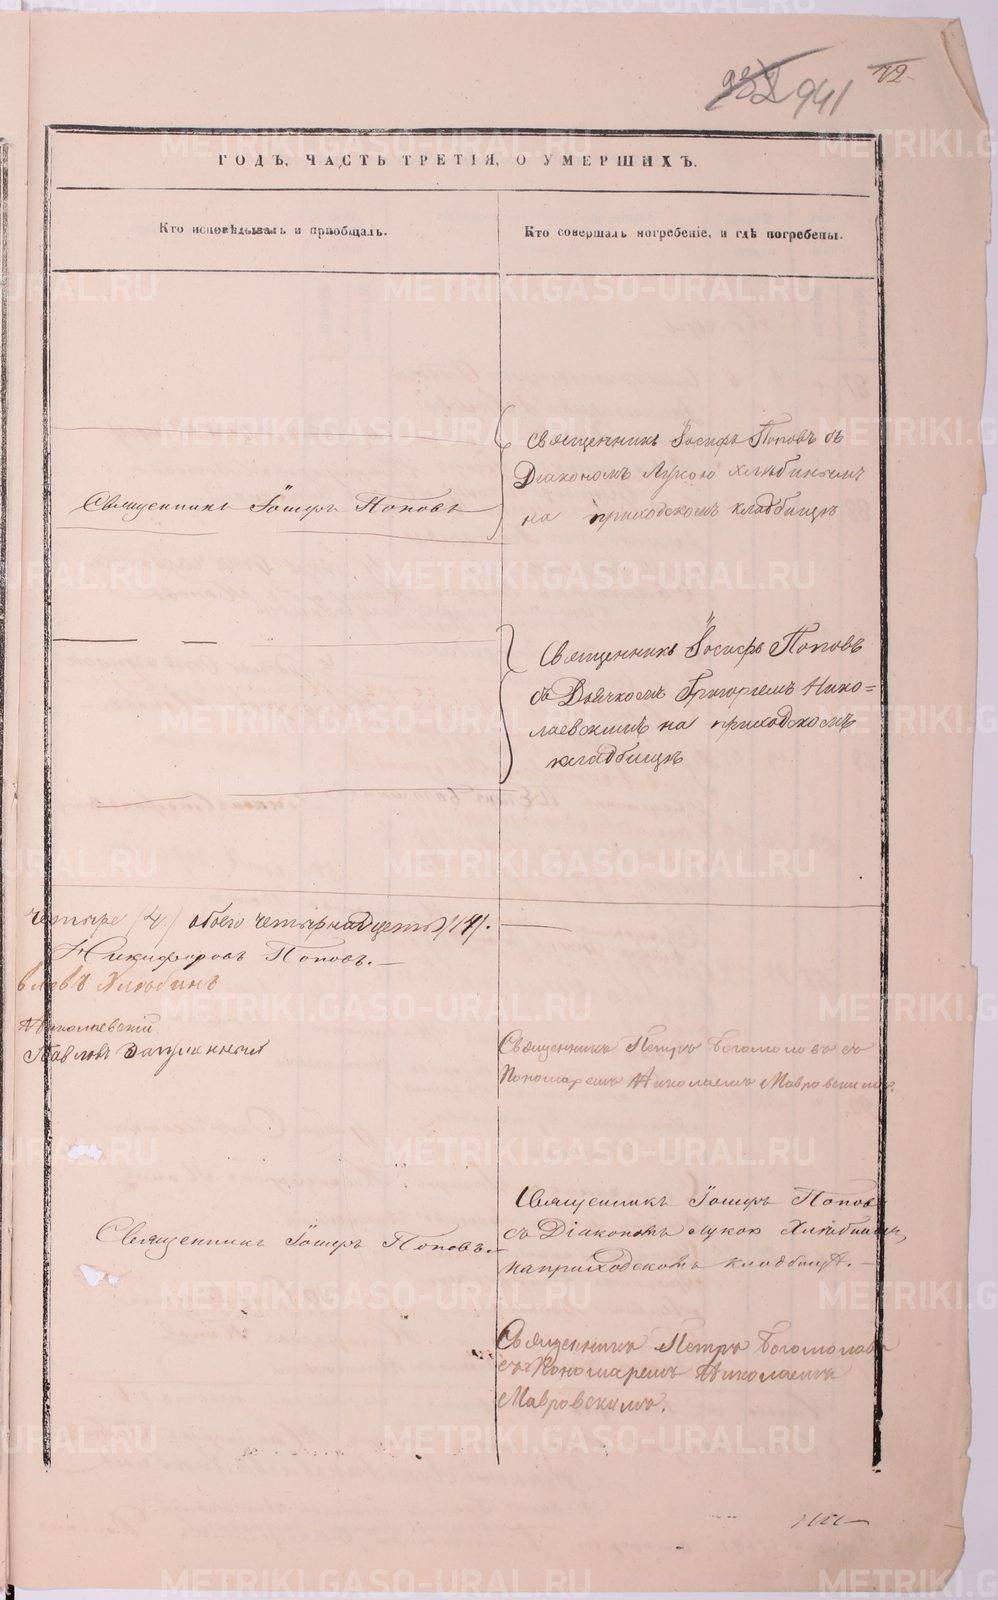 941
12
ГОДЪ, ЧАСТЬ ТРЕТІЯ, О УМЕРШИХЪ.
Кто исповѣдывалъ и пріобщалъ.
Кто совершалъ погребеніе, и гдѣ погребены.
Священникъ Іосифъ Поповъ съ
Діакономъ Лукою Хлѣбинымъ
на приходскомъ кладбищѣ
Священникъ Іосифъ Поповъ
Священникъ Іосифъ Поповъ
съ Дьячкомъ Григоріемъ Нико=
лаевскимъ на приходскомъ
кладбищѣ
четыре (4) обоего четырнадцать (14).
Никифоровъ Поповъ.
Хлѣбинъ
Николаевскій
Павловъ
Священникъ Петръ Богомоловъ съ
Пономаремъ Николаемъ Мавровскимъ.
Священникъ Іосифъ Поповъ
съ Діакономъ Лукою Хлѣбинымъ,
на приходскомъ кладбищѣ.
Священникъ Іосифъ Поповъ.
Священникъ Петръ Богомоловъ
съ Пономаремъ Николаемъ
Мавровскимъ.
METRIKI.GASO-URAL.RU